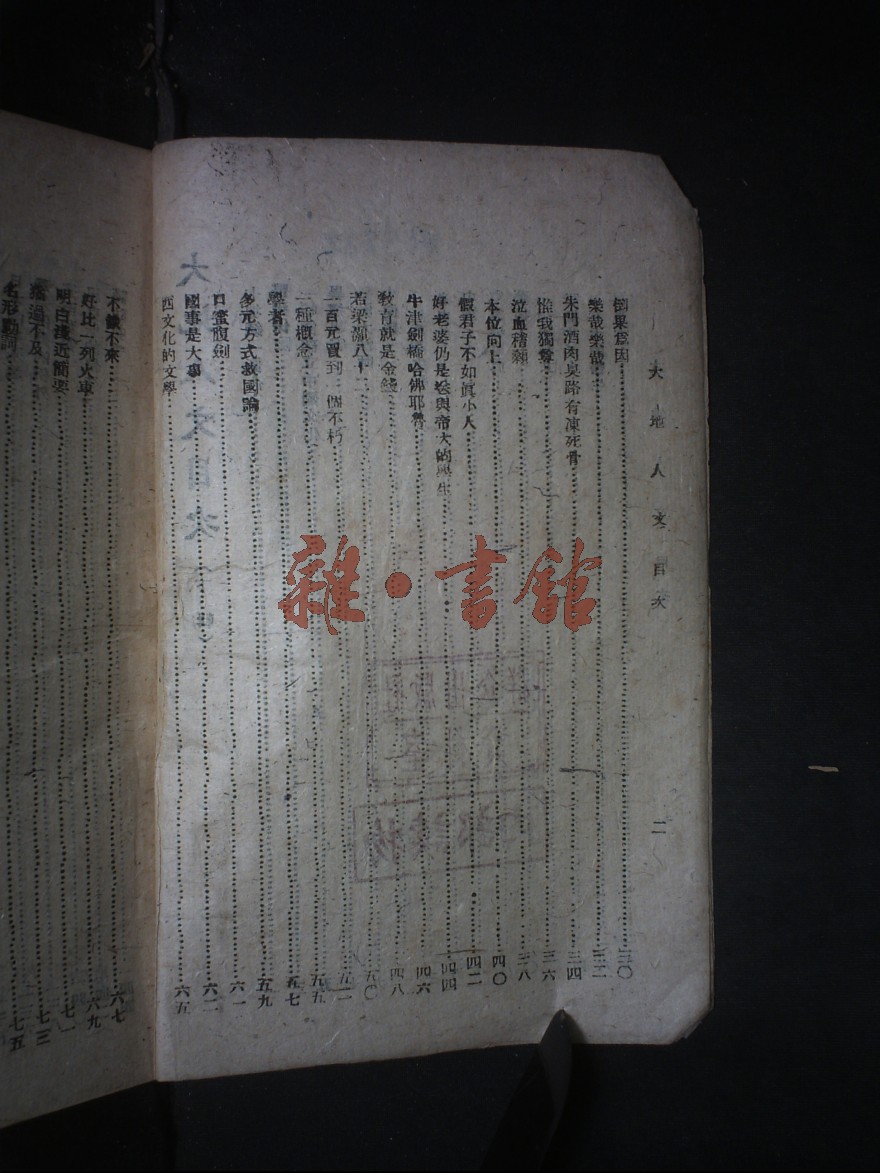 大地人文目次
二
倒果為因三〇
樂哉樂哉三二
朱門酒肉臭路有凍死骨三四
惟我獨尊三六
泣血稽顙三八
本位向上四〇
假君子不如眞小人四二
好老婆仍是送與帝大的學生四四
牛津劍橋哈佛耶魯四六
敎育就是金錢四八
若梁灝八十二五〇
一百元買到一個不朽五二
一種概念五五
學者五七
多元方式救國論五九
口蜜腹劍六一
國事是大事六二
西文化的文學六五
不識不來六七
好比一列火車六九
明白淺近簡要七一
過不及七三
名形動詞七五
雜·書館